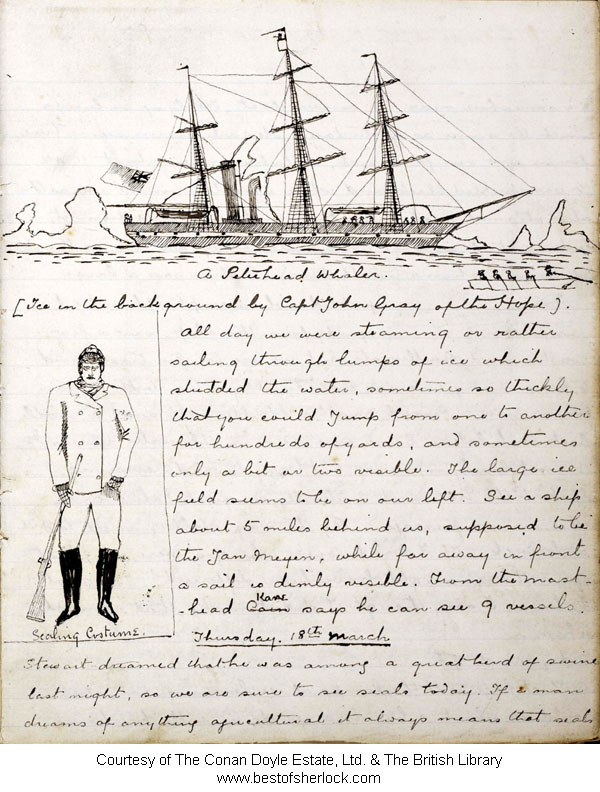 A Peterhead Whaler.
[Ice in the background by Capt John Gray of the Hope].
All day we were steaming or rather
sailing through lumps of ice which
studded the water, sometimes so thickly
that you could Jump from one to another
for hundreds of yards, and sometimes
only a bit or two visible. The large ice
field seems to be on our left. See a ship
about 5 miles behind us, supposed to be
the Jan Meyen, while far away in front
a sail is dimly visible. From the mast-
Kane
-head Cain says he can see 9 vessels.
Sealing Costume.
Thursday. 18th March
Stewart dreamed that he was among a great herd of swine
last night, so we are sure to see seals today. If a man
dreams of anything agricultural it always means that seals
Courtesy of The Conan Doyle Estate, Ltd. & The British Library
www.bestofsherlock.com